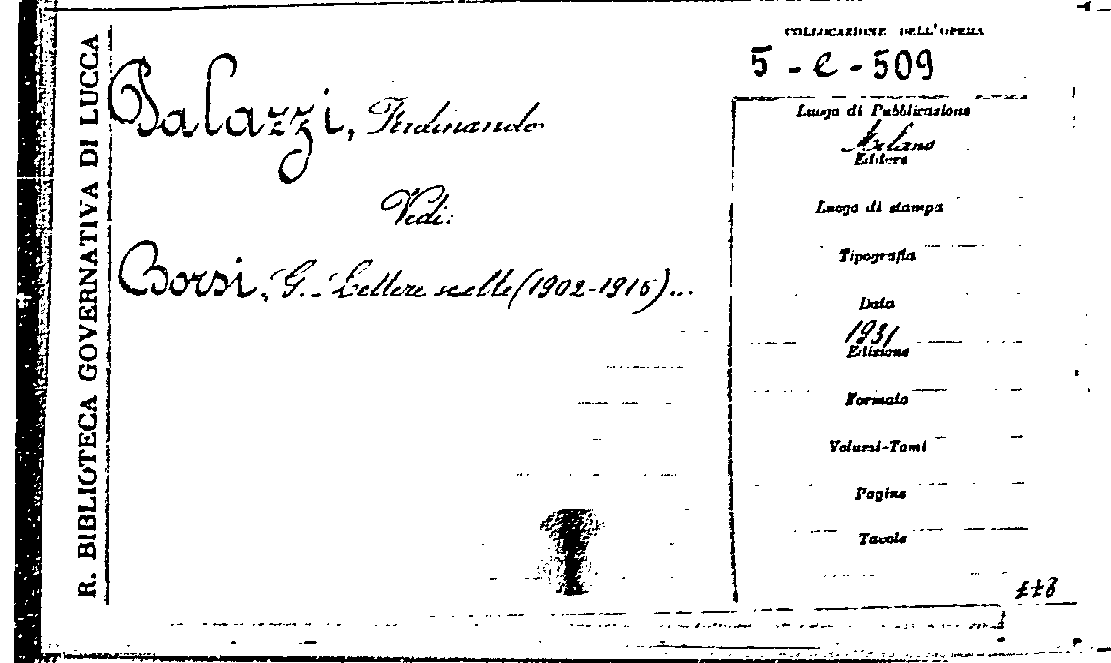 R. BIBLIOTECA GOVERNATIVA DI LUCCA
COLLOCAZIONE DELL'OPERA
5-e-509
Palazzi, Ferdinando
Vedi:
Borsi, G. Lettere scelte (1902-1915)...
Luogo di Pubblicazione
Milano
Editore
Luogo di stampa
Tipografia
Data
1931
Edizione
Formato
Volumi-Tomi
Pagine
Tavole